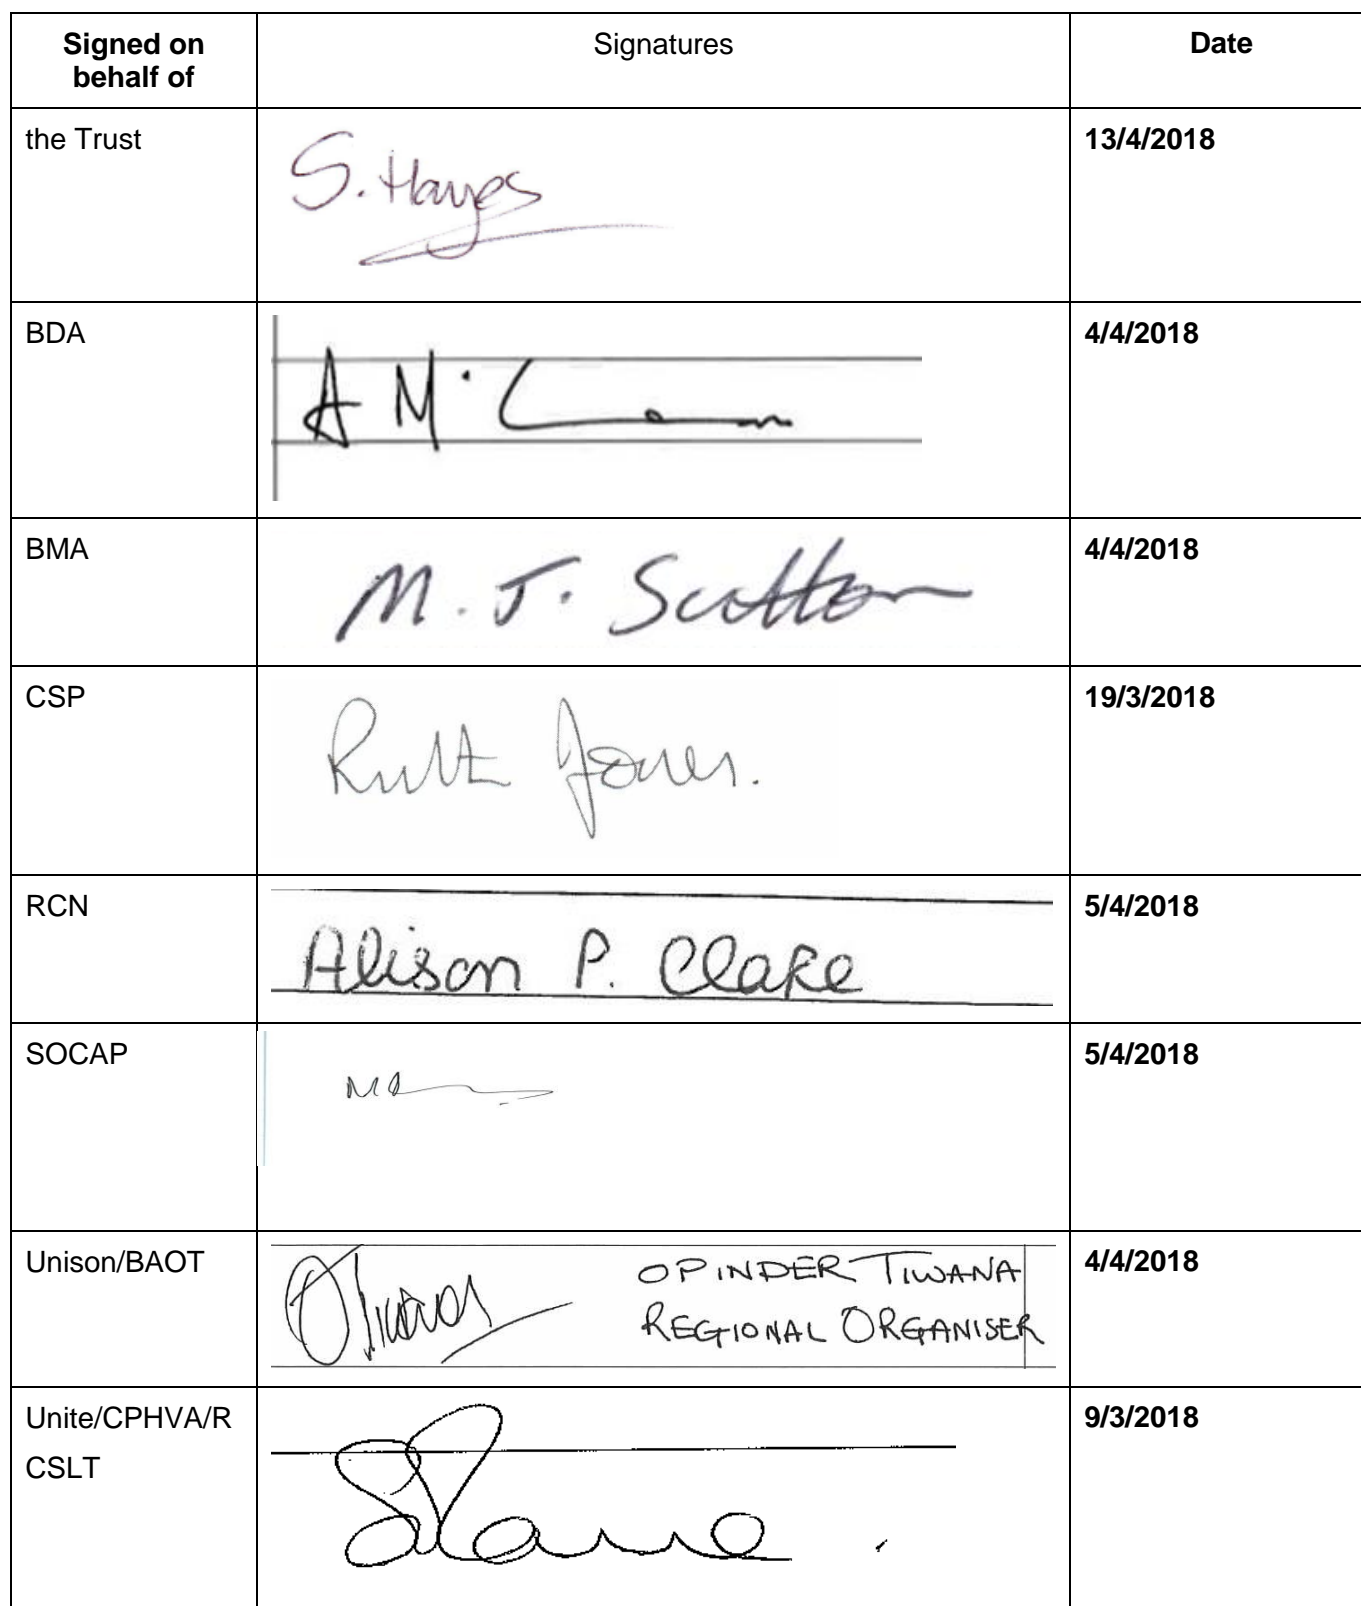 Signed on behalf of
Signatures
Date
the Trust
S. Hayes
13/4/2018
BDA
A Mc
4/4/2018
BMA
M. J. Sutton
4/4/2018
CSP
Ruth Jones.
19/3/2018
RCN
Alison P. Clarke
5/4/2018
SOCAP
5/4/2018
Unison/BAOT
OTiwana
OPINDER TIWANA
REGIONAL ORGANISER
4/4/2018
Unite/CPHVA/R
CSLT
9/3/2018